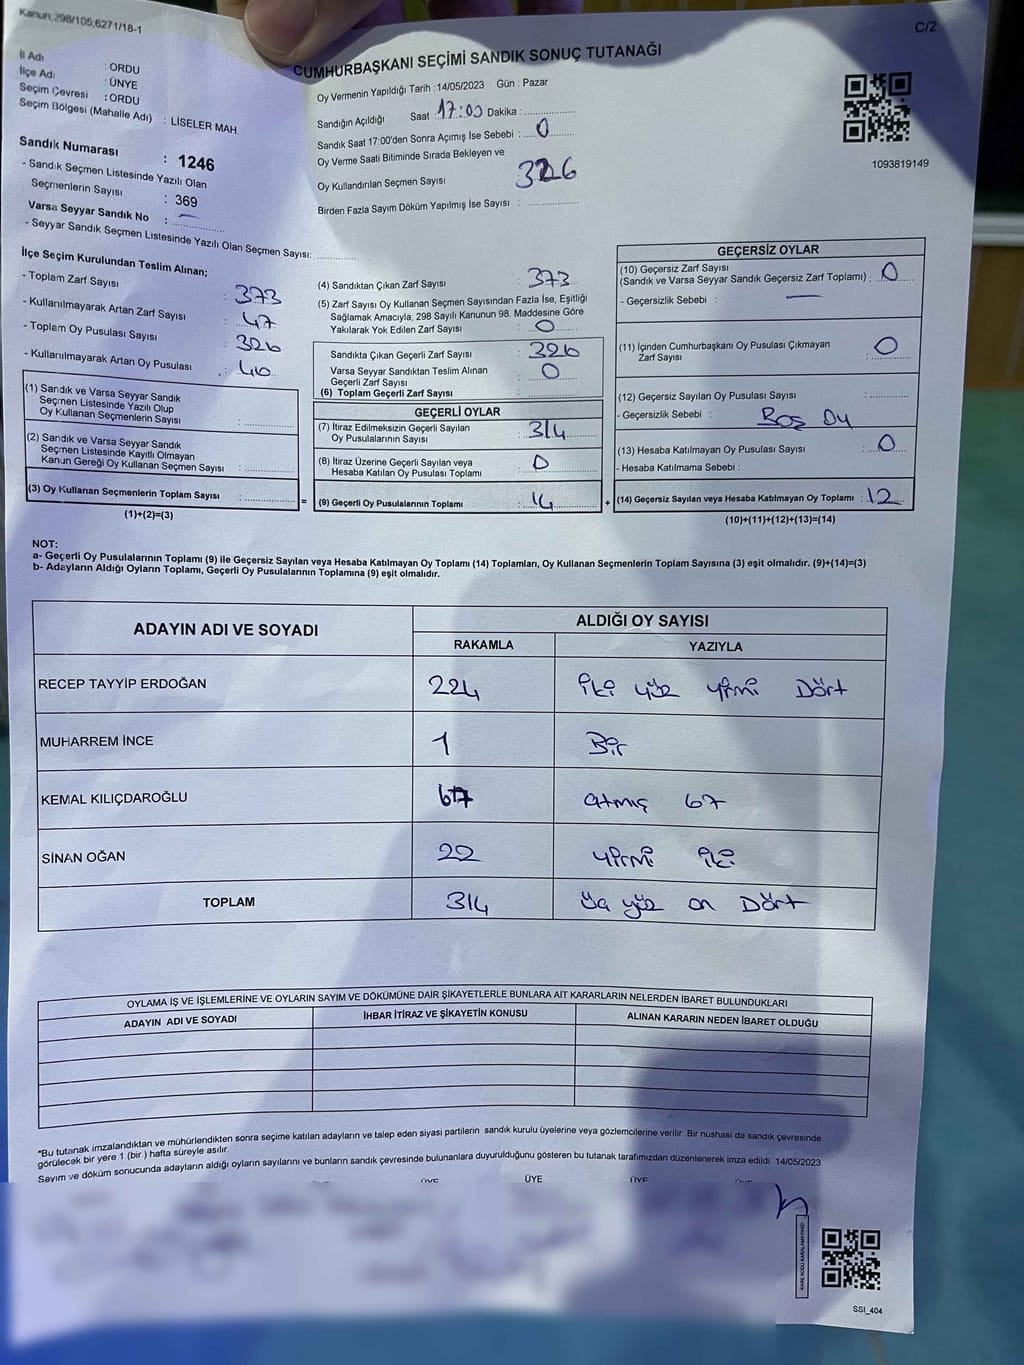 Kanun;298/105,6271/18-1
C/2
CUMHURBAŞKANI SEÇİMİ SANDIK SONUÇ TUTANAĞI
İl Adı : ORDU
İlçe Adı : ÜNYE
Seçim Çevresi : ORDU
Seçim Bölgesi (Mahalle Adı) : LİSELER MAH.
Sandık Numarası : 1246
- Sandık Seçmen Listesinde Yazılı Olan
Seçmenlerin Sayısı : 369
Varsa Seyyar Sandık No : —
- Seyyar Sandık Seçmen Listesinde Yazılı Olan Seçmen Sayısı: ..............
Oy Vermenin Yapıldığı Tarih : 14/05/2023 Gün : Pazar
Sandığın Açıldığı Saat : 17:00 Dakika : ..............
Sandık Saat 17:00'den Sonra Açımış İse Sebebi : 0
Oy Verme Saati Bitiminde Sırada Bekleyen ve
Oy Kullandırılan Seçmen Sayısı 326
Birden Fazla Sayım Döküm Yapılmış İse Sayısı : ..............
1093819149
İlçe Seçim Kurulundan Teslim Alınan;
- Toplam Zarf Sayısı : 373
- Kullanılmayarak Artan Zarf Sayısı : 47
- Toplam Oy Pusulası Sayısı : 326
- Kullanılmayarak Artan Oy Pusulası : 40
(1) Sandık ve Varsa Seyyar Sandık
Seçmen Listesinde Yazılı Olup
Oy Kullanan Seçmenlerin Sayısı : ..............
(2) Sandık ve Varsa Seyyar Sandık
Seçmen Listesinde Kayıtlı Olmayan
Kanun Gereği Oy Kullanan Seçmen Sayısı : ..............
(3) Oy Kullanan Seçmenlerin Toplam Sayısı : .............. =
(1)+(2)=(3)
(4) Sandıktan Çıkan Zarf Sayısı : 373
(5) Zarf Sayısı Oy Kullanan Seçmen Sayısından Fazla İse, Eşitliği
Sağlamak Amacıyla, 298 Sayılı Kanunun 98. Maddesine Göre
Yakılarak Yok Edilen Zarf Sayısı : 0
Sandıkta Çıkan Geçerli Zarf Sayısı : 326
Varsa Seyyar Sandıktan Teslim Alınan
Geçerli Zarf Sayısı : 0
(6) Toplam Geçerli Zarf Sayısı : ..............
GEÇERLİ OYLAR
(7) İtiraz Edilmeksizin Geçerli Sayılan
Oy Pusulalarının Sayısı : 314
(8) İtiraz Üzerine Geçerli Sayılan veya
Hesaba Katılan Oy Pusulası Toplamı : 0
(9) Geçerli Oy Pusulalarının Toplamı : 14 +
GEÇERSİZ OYLAR
(10) Geçersiz Zarf Sayısı
(Sandık ve Varsa Seyyar Sandık Geçersiz Zarf Toplamı) : 0
- Geçersizlik Sebebi : —
(11) İçinden Cumhurbaşkanı Oy Pusulası Çıkmayan
Zarf Sayısı : 0
(12) Geçersiz Sayılan Oy Pusulası Sayısı : ..............
- Geçersizlik Sebebi : Boş Oy
(13) Hesaba Katılmayan Oy Pusulası Sayısı : 0
- Hesaba Katılmama Sebebi :
(14) Geçersiz Sayılan veya Hesaba Katılmayan Oy Toplamı : 12
(10)+(11)+(12)+(13)=(14)
NOT:
a- Geçerli Oy Pusulalarının Toplamı (9) ile Geçersiz Sayılan veya Hesaba Katılmayan Oy Toplamı (14) Toplamları, Oy Kullanan Seçmenlerin Toplam Sayısına (3) eşit olmalıdır. (9)+(14)=(3)
b- Adayların Aldığı Oyların Toplamı, Geçerli Oy Pusulalarının Toplamına (9) eşit olmalıdır.
ADAYIN ADI VE SOYADI ALDIĞI OY SAYISI
RAKAMLA YAZIYLA
RECEP TAYYİP ERDOĞAN 224 iki yüz yirmi Dört
MUHARREM İNCE 1 Bir
KEMAL KILIÇDAROĞLU 67 atmış 67
SİNAN OĞAN 22 yirmi iki
TOPLAM 314 yüz on Dört
OYLAMA İŞ VE İŞLEMLERİNE VE OYLARIN SAYIM VE DÖKÜMÜNE DAİR ŞİKAYETLERLE BUNLARA AİT KARARLARIN NELERDEN İBARET BULUNDUKLARI
ADAYIN ADI VE SOYADI İHBAR İTİRAZ VE ŞİKAYETİN KONUSU ALINAN KARARIN NEDEN İBARET OLDUĞU
*Bu tutanak imzalandıktan ve mühürlendikten sonra seçime katılan adayların ve talep eden siyasi partilerin sandık kurulu üyelerine veya gözlemcilerine verilir. Bir nüshası da sandık çevresinde
görülecek bir yere 1 (bir ) hafta süreyle asılır.
Sayım ve döküm sonucunda adayların aldığı oyların sayılarını ve bunların sandık çevresinde bulunanlara duyurulduğunu gösteren bu tutanak tarafımızdan düzenlenerek imza edildi. 14/05/2023
ÜYE ÜYE ÜYE
KARE KODU KARALAMAYINIZ!
SSI_404